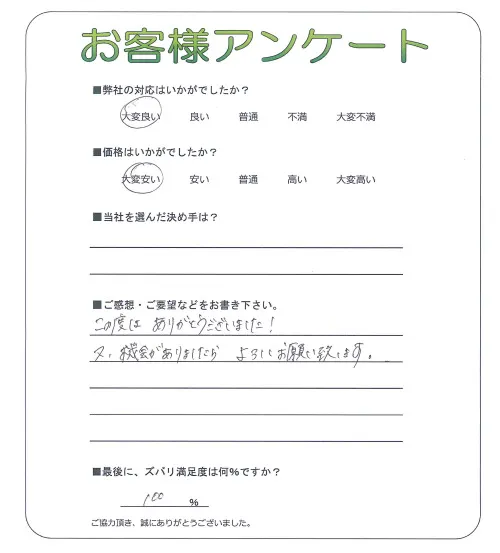 お客様アンケート
■弊社の対応はいかがでしたか?
大変良い 良い 普通 不満 大変不満
■価格はいかがでしたか?
大変安い 安い 普通 高い 大変高い
■当社を選んだ決め手は?
■ご感想・ご要望などをお書き下さい。
この度は ありがとうございました!
又、機会がありましたら よろしくお願い致します。
■最後に、ズバリ満足度は何%ですか?
100 %
ご協力頂き、誠にありがとうございました。